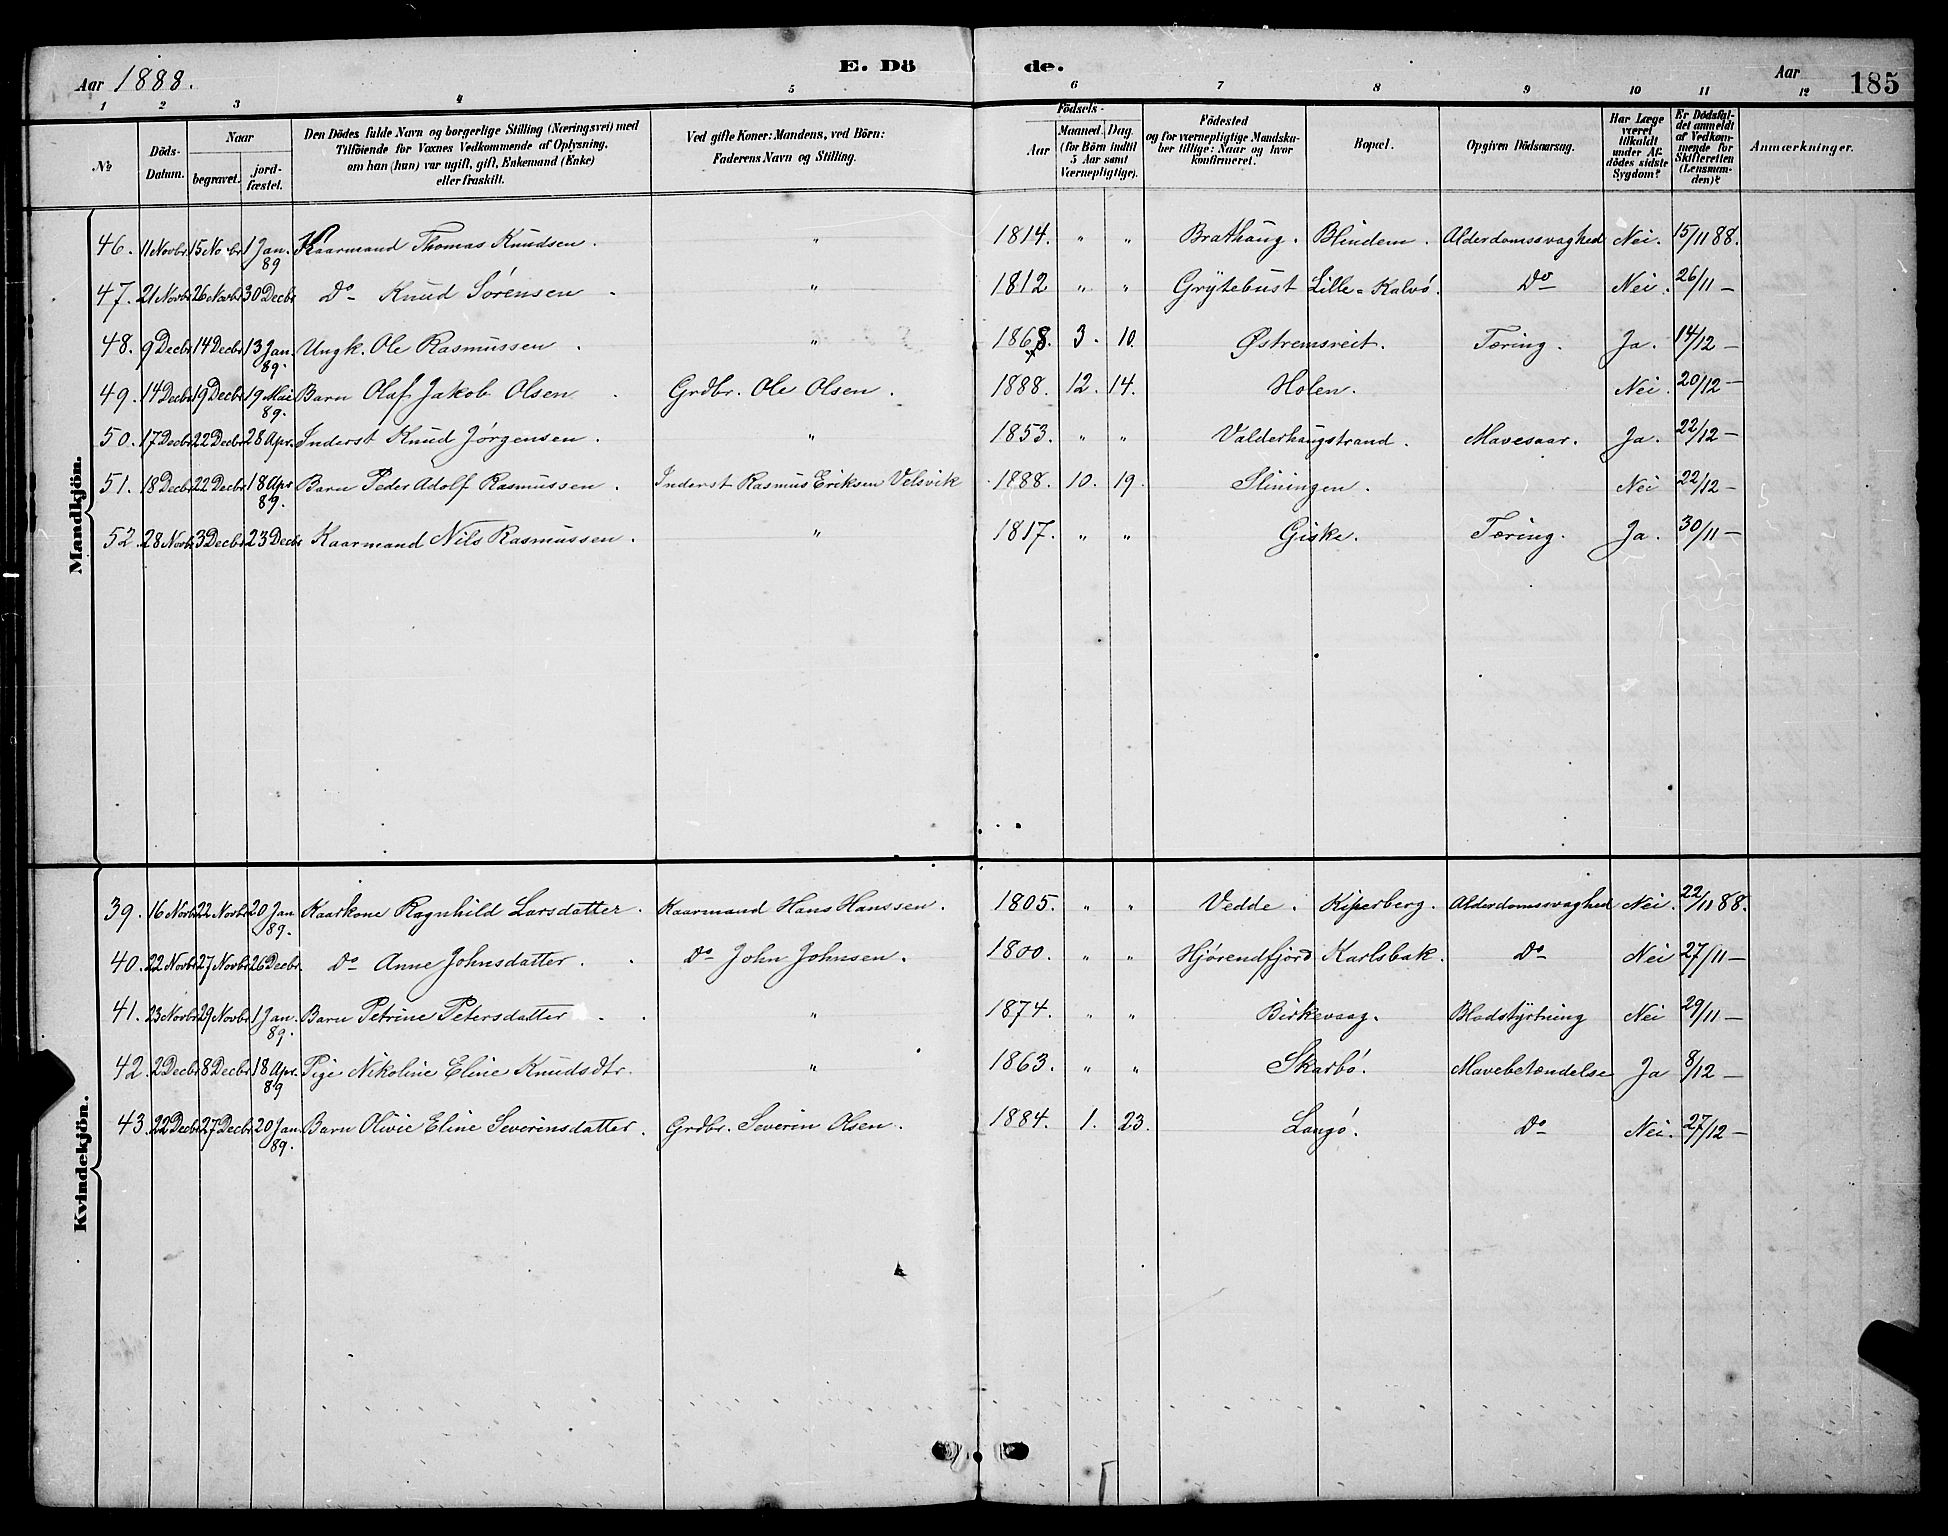 Aar 1888. E. Dö de. Aar 185
1 2 3 4 5 6 7 8 9 10 11 12
No Döds-Datum. Naar begravet. jord-fæstet. Den Dödes fulde Navn og borgerlige Stilling (Næringsvei) med Tilföiende for Voxnes Vedkommende af Oplysning, om han (hun) var ugift, gift, Enkemand (Enke) eller fraskilt. Ved gifte Koner: Mandens, ved Börn: Faderens Navn og Stilling. Födsels- Aar Maaned. Dag. (for Börn indtil 5 Aar samt Værnepligtige). Födested og for værnepligtige Mandskaber tillige: Naar og hvor konfirmeret. Bopæl. Opgiven Dödsaarsag. Har Læge været tilkaldt under Afdödes sidste Sygdom? Er Dödsfaldet anmeldt af Vedkommende for Skifteretten (Lensmanden)? Anmærkninger.
Mandkjön.
46. 11 Novbr 15 Novbr 1 Jan. 89 Kaarmand Thomas Knudsen. " 1814. " " Brathaug. Blindem. Alderdomssvaghed Nei. 15/11 88.
47. 21 Novbr 26 Novbr 30 Decbr Do Knud Sørensen " 1812 " " Grytebust Lille-Kalvø. Do Nei. 26/11 —
48. 9 Decbr 14 Decbr 13 Jan. 89. Ungk. Ole Rasmussen. " 1868. 3. 10. Østremsreit. Tæring. Ja. 14/12 —
49. 14 Decbr 19 Decbr 19 Mai 89. Barn Olaf Jakob Olsen Grdbr. Ole Olsen. 1888. 12. 14. Holen. Nei. 20/12 —
50. 17 Decbr 22 Decbr 28 Apr. Inderst Knud Jørgensen. " 1853. " " Valderhaugstrand. Mavesaar. Ja. 22/12 —
51. 18 Decbr 22 Decbr 18 Apr 89. Barn Peder Adolf Rasmussen. Inderst Rasmus Eriksen Velsvik 1888. 10. 19. Sliningen. Nei 22/12 —
52. 28 Novbr 3 Decbr 23 Decbr Kaarmand Nils Rasmussen. " 1817. " " Giske. Tæring. Ja. 30/11 —
Kvindekjön.
39. 16 Novbr 22 Novbr 20 Jan 89. Kaarkone Ragnhild Larsdatter. Kaarmand Hans Hanssen. 1805. " " Vedde. Kiperberg. Alderdomssvaghed Nei. 22/11 88.
40. 22 Novbr 27 Novbr 26 Decbr. Do Anne Johnsdatter. Do John Johnsen. 1800. " " Hjørendfjord Karlsbak. Do Nei 27/11 —
41. 23 Novbr 29 Novbr 1 Jan. 89. Barn Petrine Petersdatter " 1874. " " Birkevaag. Blodstyrtning Nei 29/11 —
42. 2 Decbr 8 Decbr 18 Apr. 89 Pige Nikoline Eline Knudsdtr. " 1863. " " Skarbø. Mavebetændelse Ja 8/12 —
43. 22 Decbr 27 Decbr 20 Jan 89. Barn Olivie Eline Severinsdatter. Grdbr. Severin Olsen. 1884. 1. 23. Langø. Do Nei. 27/12 —